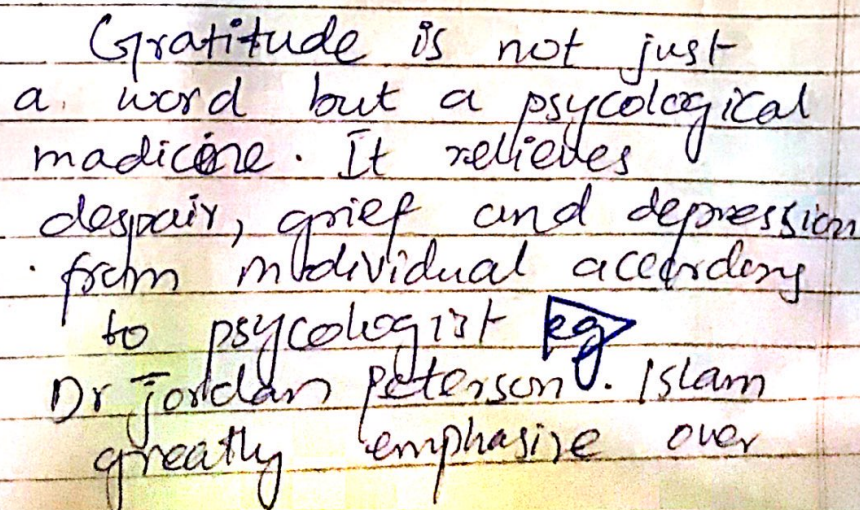 Gratitude is not just
a word but a psycological
madicine. It relieves
despair, grief and depression
from individual according
to psycologist eg
Dr Jordan Peterson. Islam
greatly emphasize over